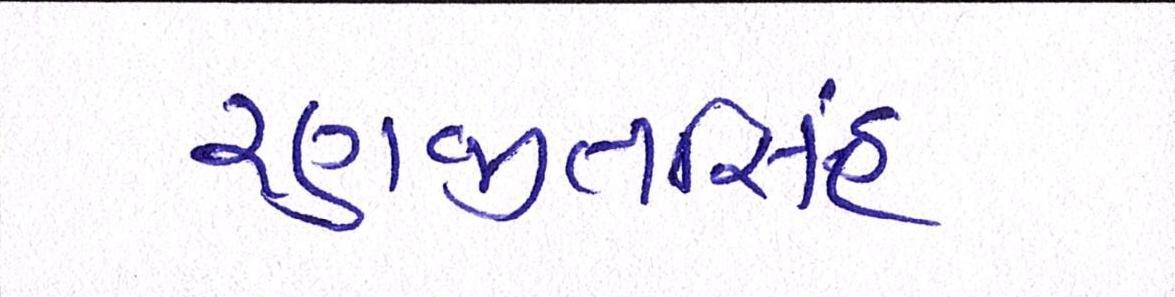 રણજીતસિંહ